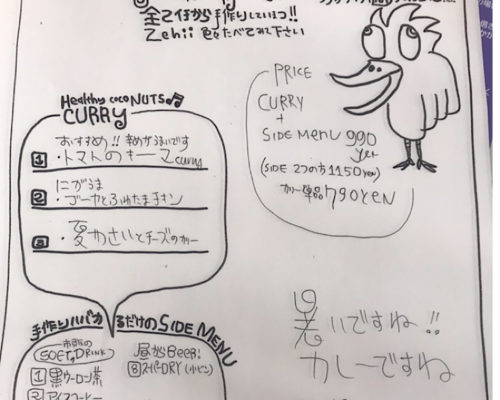 全て仔から手作りしています!!
Zehii 色々たべてみて下さい
Healthy coco NUTS
CURRY
おすすめ!! 辛めがうまいです
1 ・トマトのキーマ curry
にがうま
2 ・ゴーヤとふわたまチキン
3 ・夏やさいとチーズのカレー
PRICE
CURRY
+
SIDE MENU 990
yen
(SIDE 2つのち 1150yen)
カレー単品 790yEN
暑いですね!!
カレーですね
手作り
るだけの SIDE MENU
SOFT DRINK
1 黒ウーロン茶
アイスコーヒー
昼からBeeR!
8 スーパーDRY (小ビン)